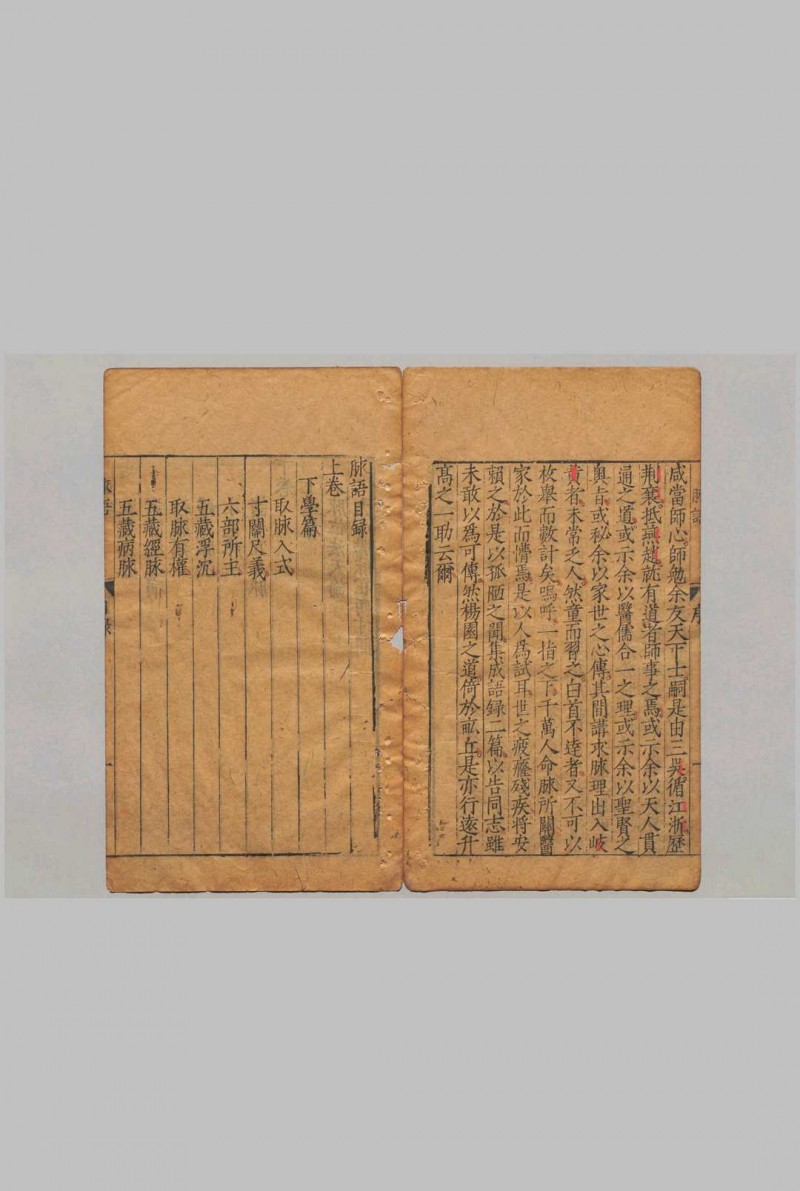 咸當師心師勉余友天下士嗣是由三吳循江浙歷
荆襄抵燕趙就有道者師事之焉或示余以天人貫
通之道或示余以醫儒合一之理或示余以聖賢之
奥旨或秘余以家世之心傳其間講求脉理出入岐
黄者未常乏人然童而習之白首不達者又不可以
枚舉而數計矣嗚呼一指之下千萬人命脉所關醫
家於此而懵焉是以人爲試耳世之疲癃殘疾將安
賴之於是以孤陋之聞集成語録二篇以告同志雖
未敢以爲可傳然楊園之道倚於畆丘是亦行遠升
髙之一助云爾
脉語
序
脉語目録
上卷
下學篇
取脉入式
寸關尺義
六部所主
五藏浮沉
取脉有權
五藏經脉
五藏病脉
脉語
目録
一